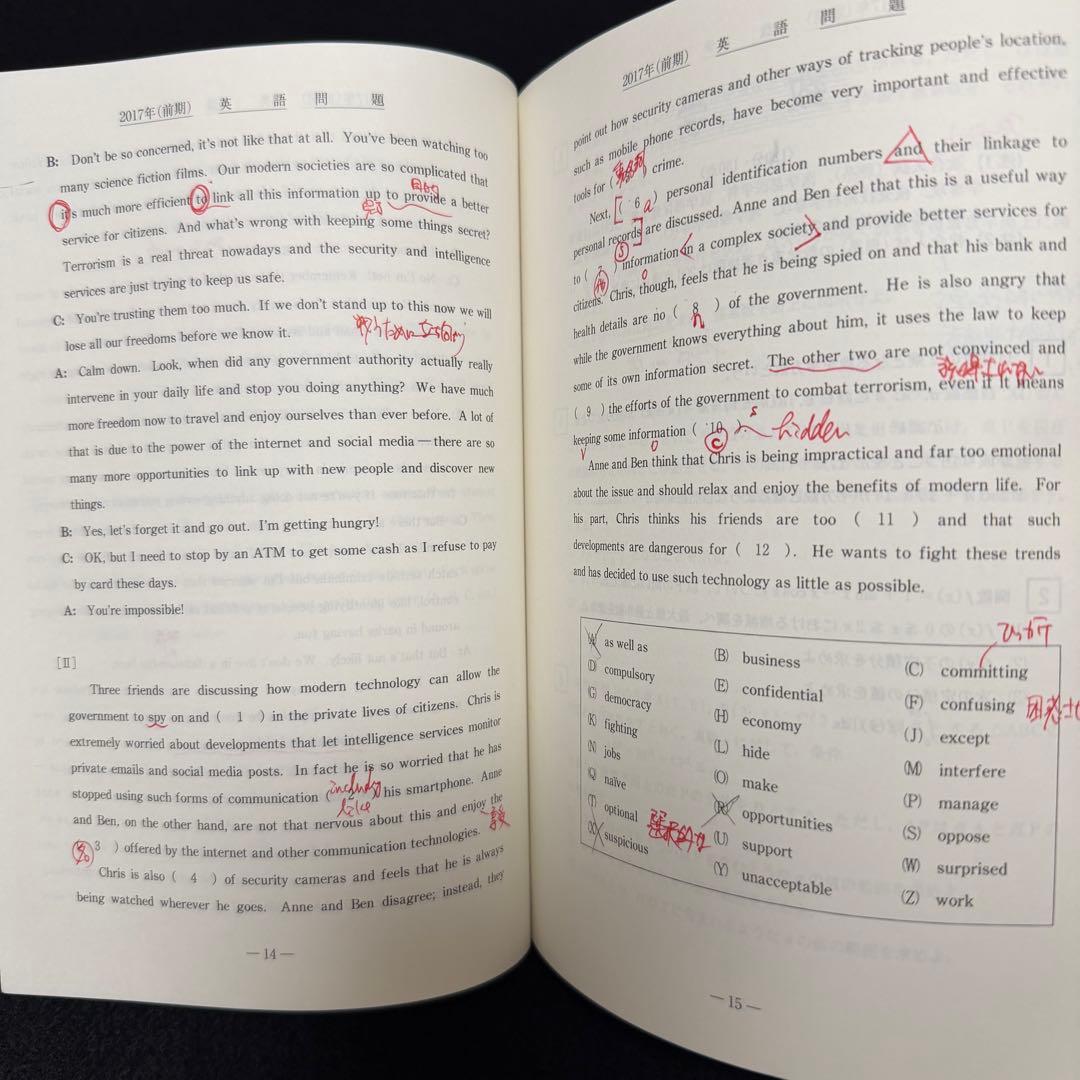 2017年(前期) 英語問題
B: Don't be so concerned, it's not like that at all. You've been watching too
many science fiction films. Our modern societies are so complicated that
it's much more efficient to link all this information up to provide a better
目的
service for citizens. And what's wrong with keeping some things secret?
Terrorism is a real threat nowadays and the security and intelligence
services are just trying to keep us safe.
C: You're trusting them too much. If we don't stand up to this now we will
lose all our freedoms before we know it.
A: Calm down. Look, when did any government authority actually really
intervene in your daily life and stop you doing anything? We have much
more freedom now to travel and enjoy ourselves than ever before. A lot of
that is due to the power of the internet and social media—there are so
many more opportunities to link up with new people and discover new
things.
B: Yes, let's forget it and go out. I'm getting hungry!
C: OK, but I need to stop by an ATM to get some cash as I refuse to pay
by card these days.
A: You're impossible!
[Ⅱ]
Three friends are discussing how modern technology can allow the
government to spy on and ( 1 ) in the private lives of citizens. Chris is
extremely worried about developments that let intelligence services monitor
private emails and social media posts. In fact he is so worried that he has
stopped using such forms of communication ( 2 ) his smartphone. Anne
including
and Ben, on the other hand, are not that nervous about this and enjoy the
( 3 ) offered by the internet and other communication technologies.
Chris is also ( 4 ) of security cameras and feels that he is always
being watched wherever he goes. Anne and Ben disagree; instead, they
—14—
2017年(前期) 英語問題
point out how security cameras and other ways of tracking people's location,
such as mobile phone records, have become very important and effective
tools for ( ) crime.
Next, [ 6 a ) personal identification numbers and their linkage to
personal records] are discussed. Anne and Ben feel that this is a useful way
to ( 7 ) information in a complex society and provide better services for
citizens. Chris, though, feels that he is being spied on and that his bank and
health details are no ( 8 ) of the government. He is also angry that
n
while the government knows everything about him, it uses the law to keep
some of its own information secret. The other two are not convinced and
( 9 ) the efforts of the government to combat terrorism, even if it means
keeping some information ( 10 ).
V O C S hidden
Anne and Ben think that Chris is being impractical and far too emotional
about the issue and should relax and enjoy the benefits of modern life. For
his part, Chris thinks his friends are too ( 11 ) and that such
developments are dangerous for ( 12 ). He wants to fight these trends
and has decided to use such technology as little as possible.
(A) as well as (B) business (C) committing
(D) compulsory (E) confidential (F) confusing
(G) democracy (H) economy (J) except
(K) fighting (L) hide (M) interfere
(N) jobs (O) make (P) manage
(Q) naïve (R) opportunities (S) oppose
(T) optional (U) support (W) surprised
(X) suspicious (Y) unacceptable (Z) work
—15—